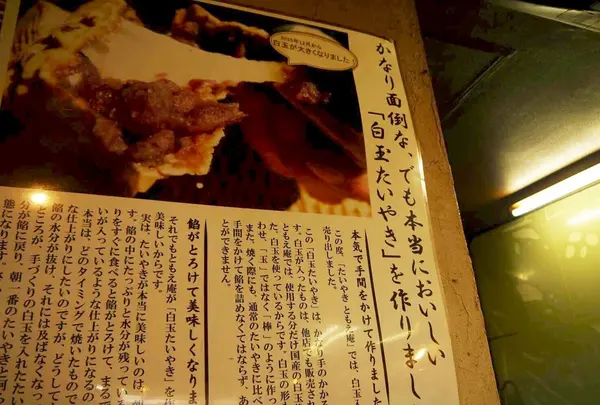 2015年12月から
白玉が大きくなりました
かなり面倒な、でも本当においしい
「白玉たいやき」を作りまし
本気で手間をかけて作りました
この度、「たいやき ともえ庵」では、白玉入
売り出しました。
この「白玉たいやき」は、かなり手のかかる
す。白玉が入ったものは、他店でも販売され
ともえ庵では、使用する分だけ国産の白玉
た、白玉を使っているからです。白玉の形も
わせ、「玉」ではなく「棒」のように作っ
また、焼く際にも、通常のたいやきに比べ
手間をかけて餡を詰めなくてはならず、あ
とができません。
餡がとろけて美味しくなりま
それでもともえ庵が「白玉たいやき」を作
美味しいからです。
実は、たいやきが本当に美味しいのは、焼
す。餡の中にたっぷりと水分が残ってい
りをすぐに食べると餡がとろけて、まるで
いが入っているような仕上がりになるの
本当は、どのタイミングで焼いたもので
な仕上がりにしたいのですが、どうして
餡の水分が抜け、それには及ばなくなっ
ところが、手づくりの白玉を入れたたい
分が餡に戻り、朝一番のたいやきと同
態になります。